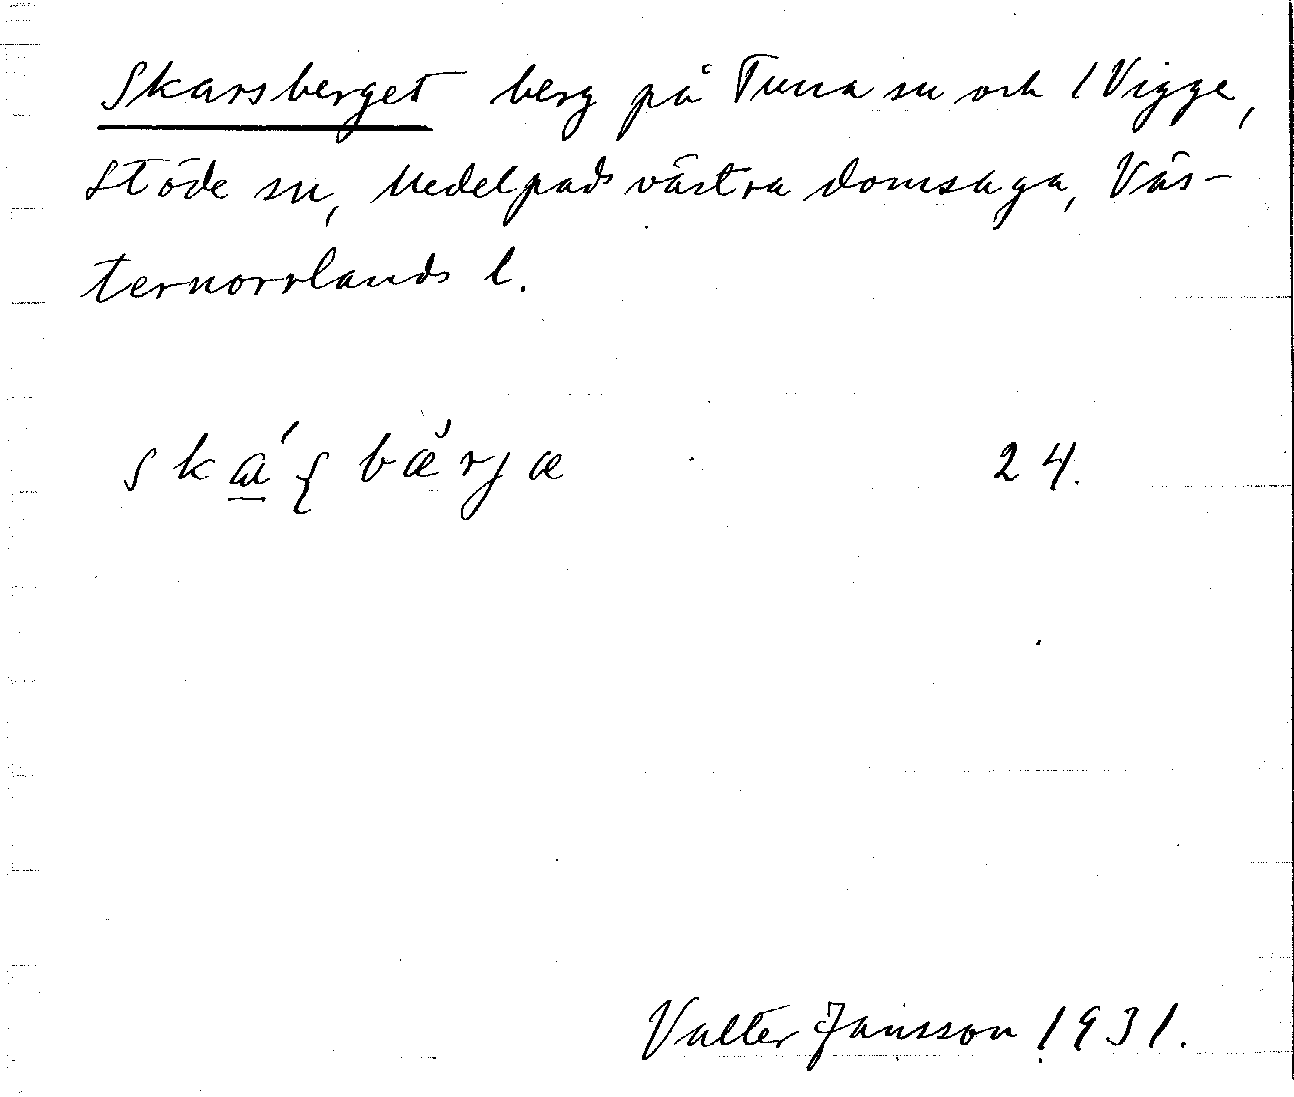 Skarsberget berg på Tuna sn och 1 Vigge,
Stöde sn, Medelpads västra domsaga, Väs-
ternorrlands l.
skáʂbæ̀rjæ 24.
Valter Jansson 1931.